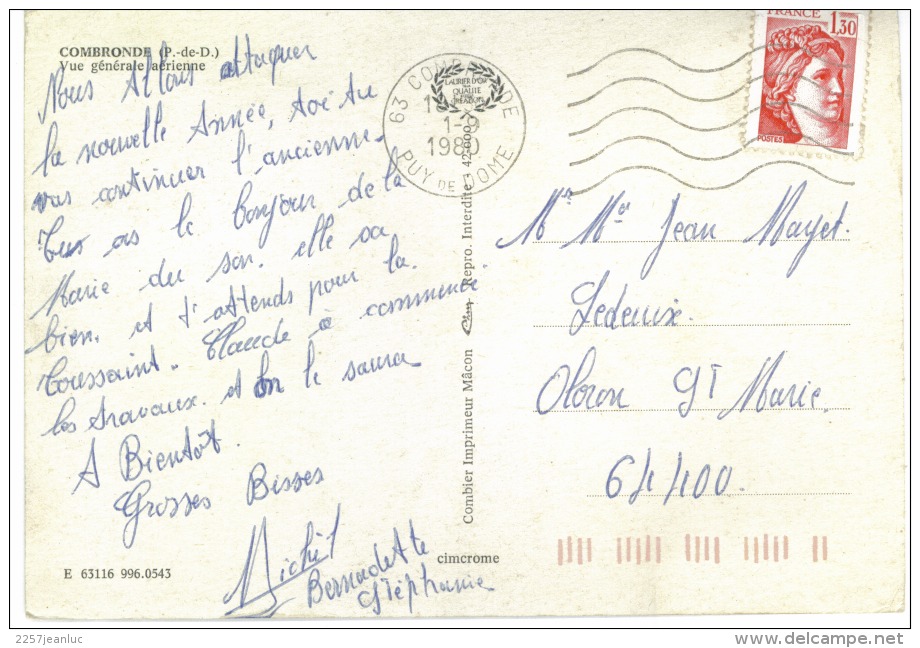 COMBRONDE (P.-de-D.)
Vue générale aérienne
Nous Allons attaquer
la nouvelle Année, toi tu
vas continuer l'ancienne.
Tu as le bonjour de la
Marie du son. elle va
bien. et t'attends pour la
Toussaint. Claude à commencé
les travaux. et on le saura
A Bientôt.
Grosses Bisses
Michel
Bernadette
Stéphanie
E 63116 996.0543
cimcrome
Combier Imprimeur Mâcon Cim Repro. Interdite 42-000
63 COMBRONDE
1-9
1980
PUY DE DOME
LAURIER D'OR
DE LA
QUALITÉ
FRANCE
1,30
POSTES
Mr Mme Jean Mayet.
Ledeuix.
Oloron St Marie.
64400.
2257jeanluc
delcampe.net